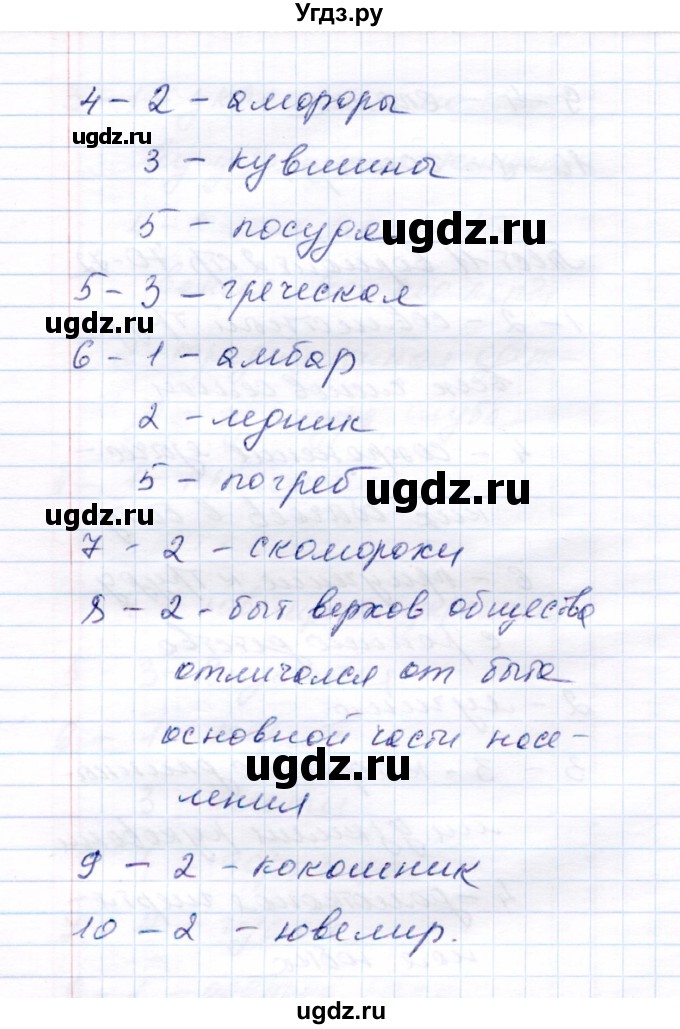 Угдз.ру
4 – 2 – амфоры
ugdz.ru
3 – кувшины
5 – посуда
ugdz.ru
5 – 3 – греческая
ugdz.ru
6 – 1 – амбар
2 – ледник
5 – погреб
ugdz.ru
ugdz.ru
7 – 2 – скоморохи
8 – 2 – быт верхов общества
отличался от быта
основной части насе-
ugdz.ru
ления
9 – 2 – кокошник
10 – 2 – ювелир.
ugdz.ru